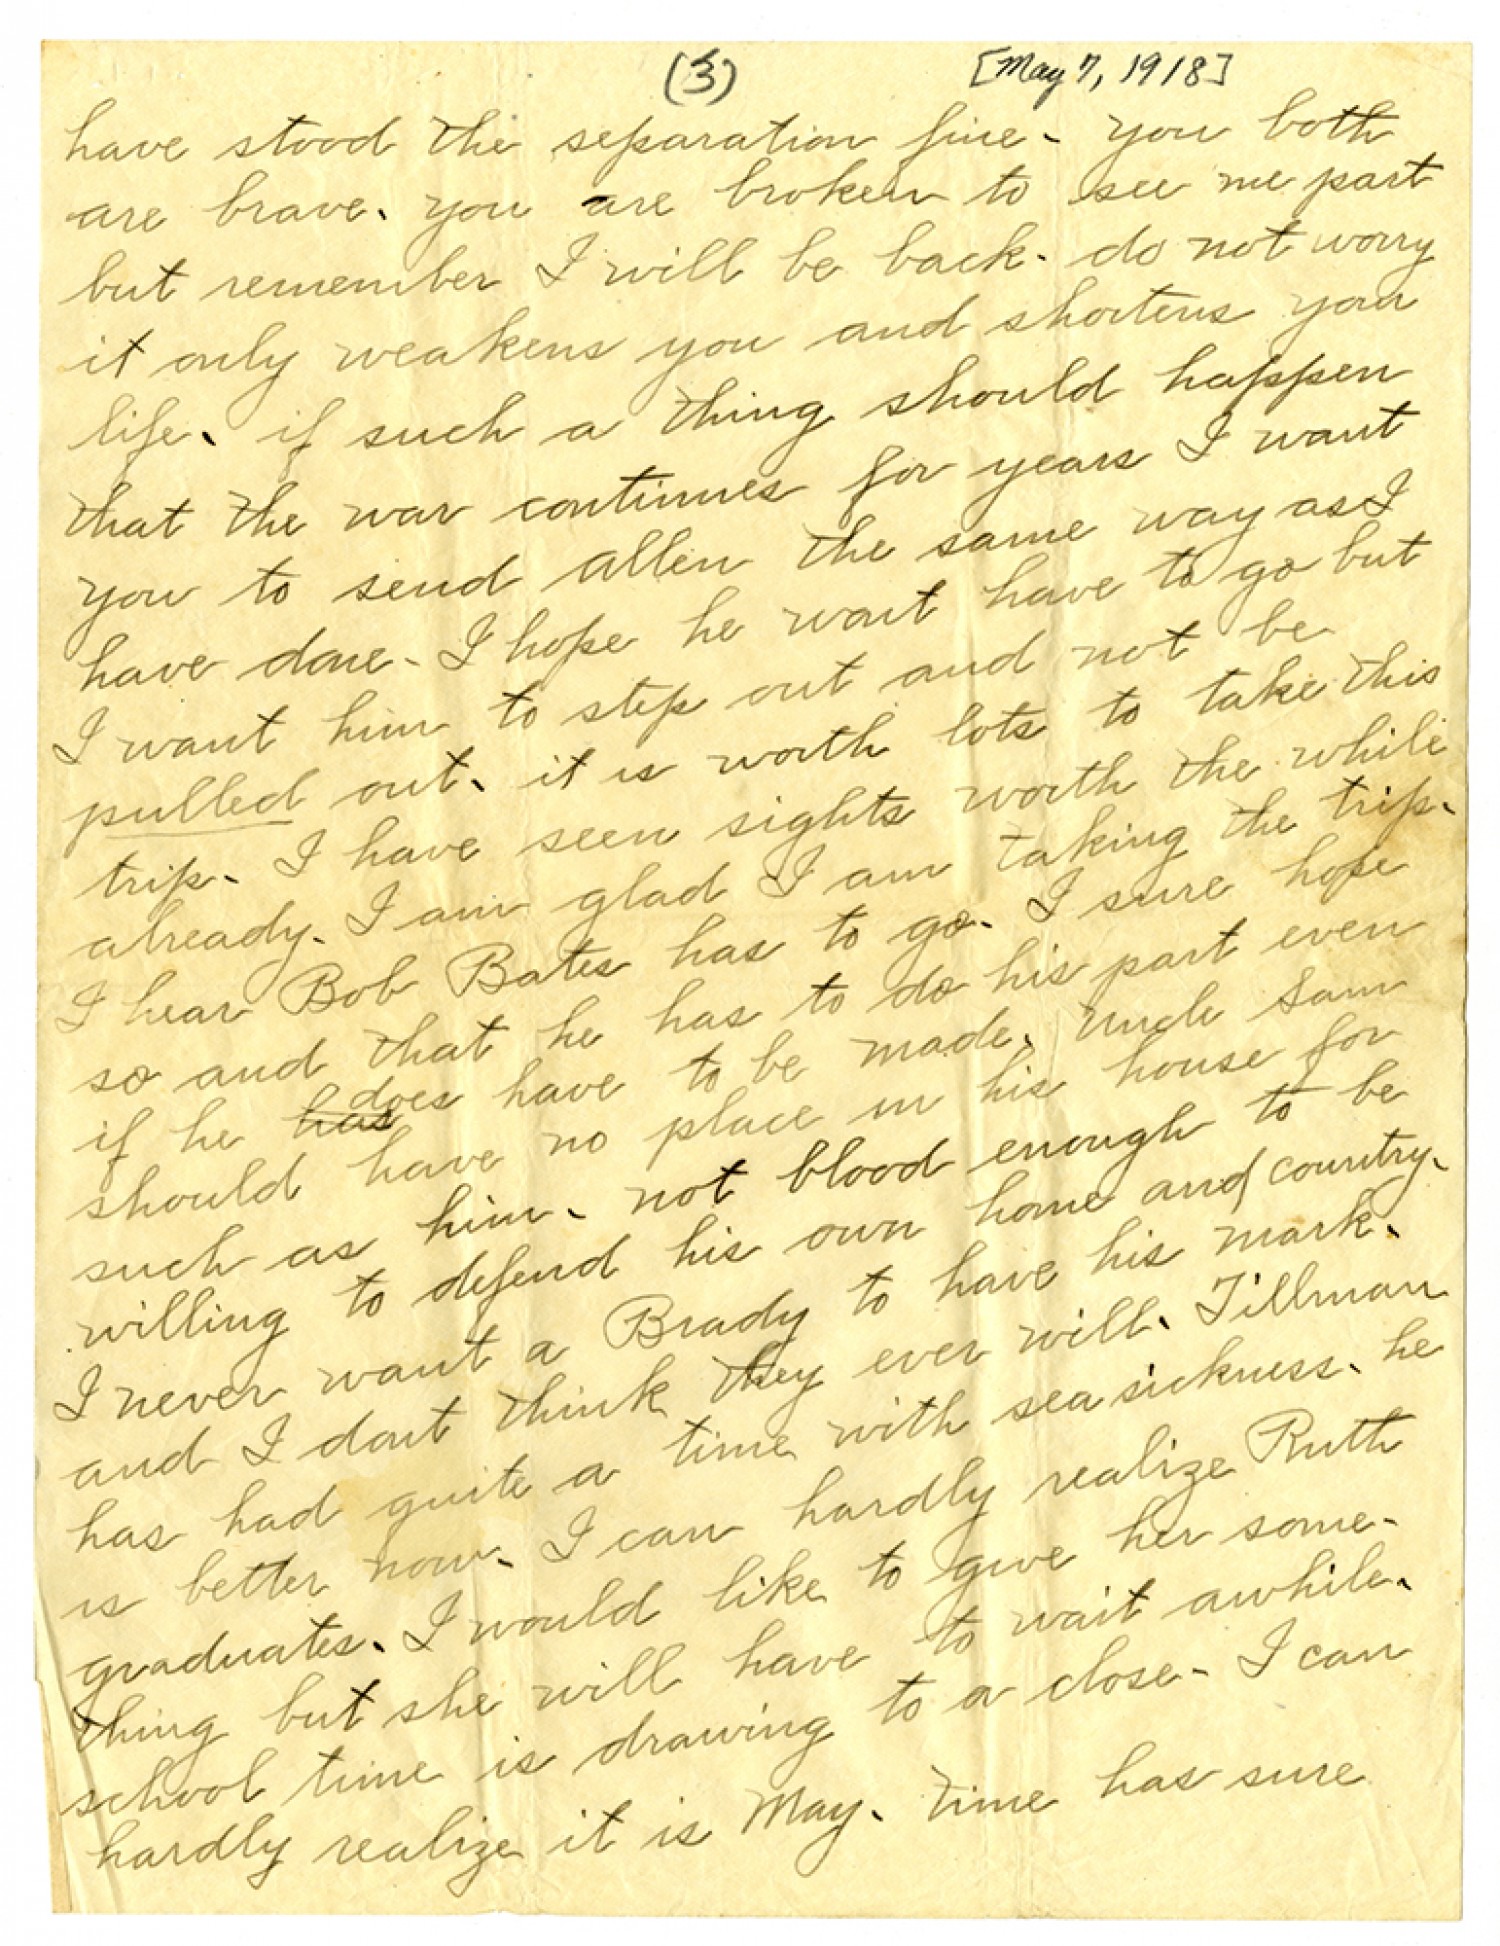 (3) [May 7, 1918]
have stood the separation fine. you both
are brave. you are broken to see me part
but remember I will be back. do not worry
it only weakens you and shortens your
life. if such a thing should happen
that the war continues for years I want
you to send allen the same way as I
have done. I hope he wont have to go but
I want him to step out and not be
pulled out. it is worth lots to take this
trip. I have seen sights worth the while
already. I am glad I am taking the trip.
I hear Bob Bates has to go. I sure hope
so and that he has to do his part even
if he has does have to be made. Uncle Sam
should have no place in his house for
such as him. not blood enough to be
willing to defend his own home and country.
I never want a Brady to have his mark.
and I dont think they ever will. Tillman
has had quite a time with sea sickness. he
is better now. I can hardly realize Ruth
graduates. I would like to give her some-
thing but she will have to wait awhile.
school time is drawing to a close. I can
hardly realize it is May. time has sure